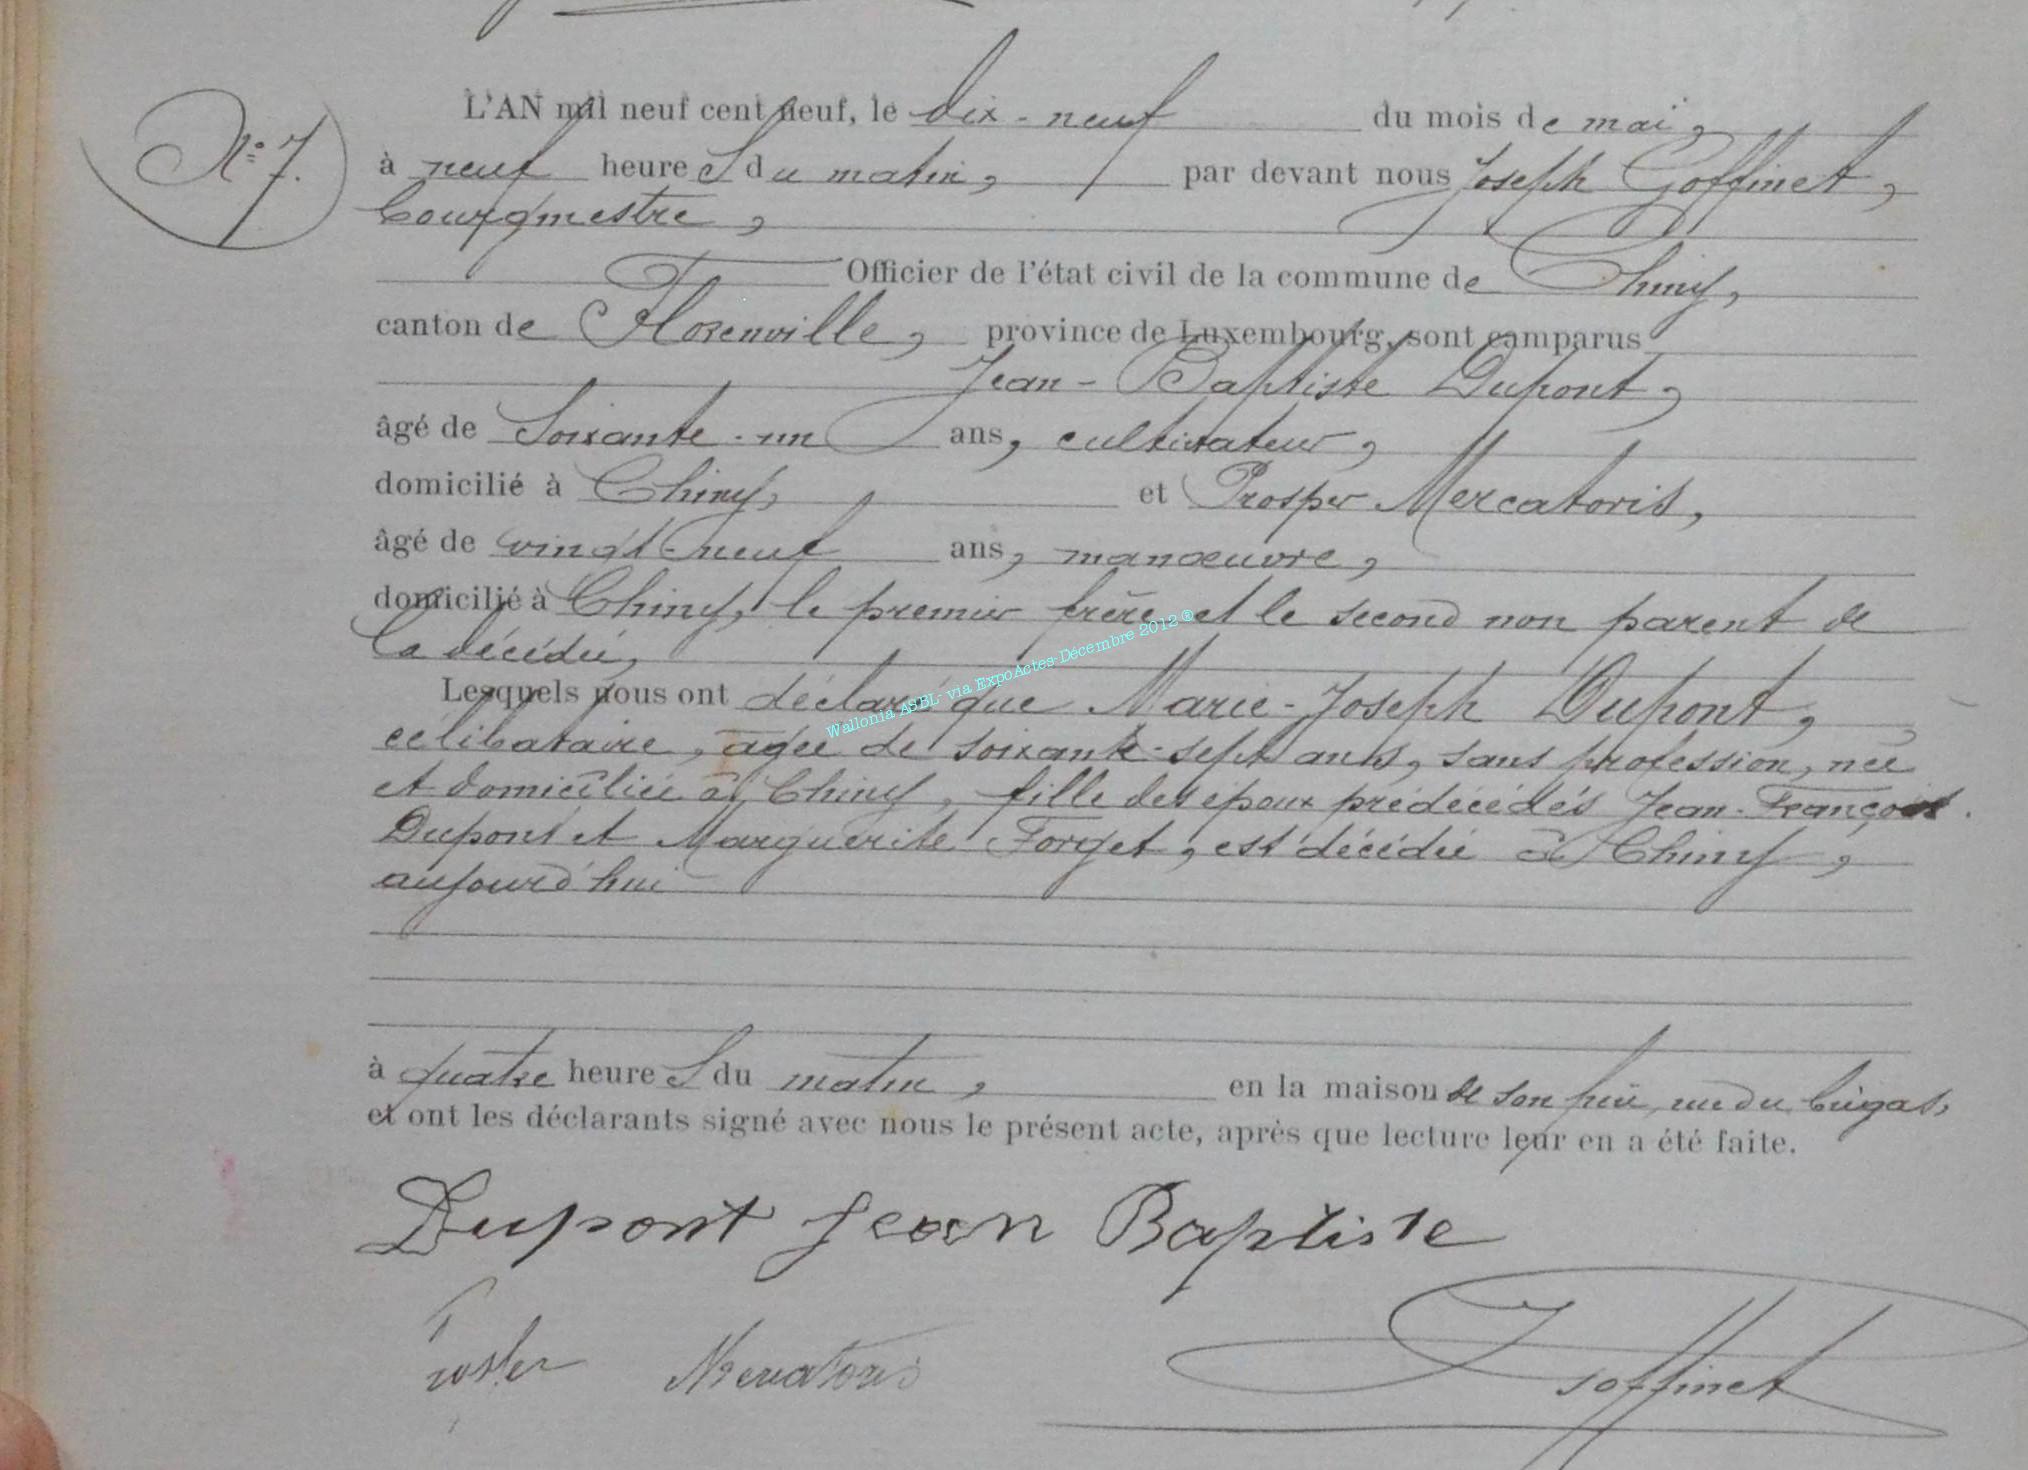 N° 7.
L'AN mil neuf cent neuf, le dix-neuf du mois de maï,
à neuf heures du matin, par devant nous Joseph Goffinet,
bourgmestre,
Officier de l'état civil de la commune de Chiny,
canton de Florenville, province de Luxembourg, sont comparus
Jean-Baptiste Dupont,
âgé de Soixante-un ans, cultivateur,
domicilié à Chiny, et Prosper Mercatoris,
âgé de vingt-neuf ans, manœuvre,
domicilié à Chiny, le premier frère et le second non parent de
la décédée,
Lesquels nous ont déclaré que Marie-Joseph Dupont,
célibataire, agée de soixante-sept ans, sans profession, née
et domiciliée à Chiny, fille des époux prédécédés Jean-François
Dupont et Marguerite Forget, est décédée à Chiny,
aujourd'hui
à quatre heures du matin, en la maison de son rue du
et ont les déclarants signé avec nous le présent acte, après que lecture leur en a été faite.
Dupont Jean Baptiste
Prosper Mercatoris
JGoffinet
Wallonia ASBL- via ExpoActes-Décembre 2012®